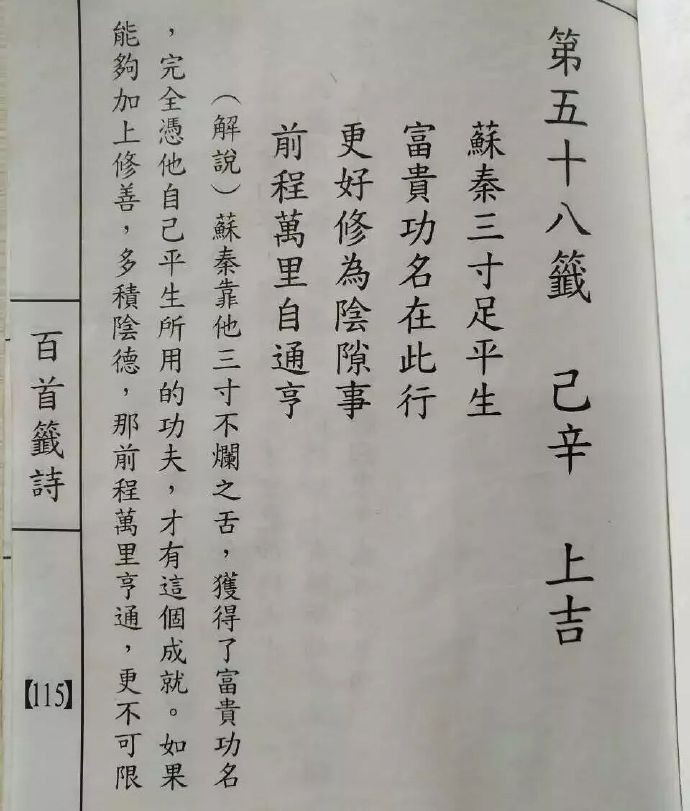 第五十八籤 己辛 上吉
蘇秦三寸足平生
富貴功名在此行
更好修為陰隙事
前程萬里自通亨
（解說）蘇秦靠他三寸不爛之舌，獲得了富貴功名
，完全憑他自己平生所用的功夫，才有這個成就。如果
能夠加上修善，多積陰德，那前程萬里亨通，更不可限
百首籤詩
【115】